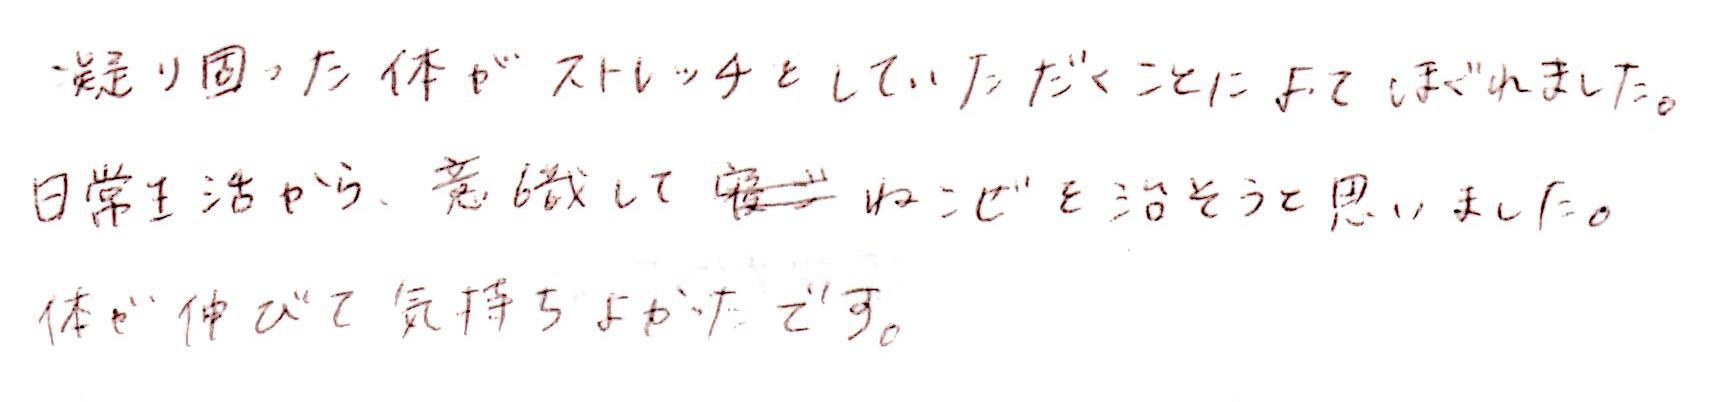 凝り固った体がストレッチとしていただくことによってほぐれました。
日常生活から、意識して ねこぜを治そうと思いました。
体が伸びて気持ちよかったです。